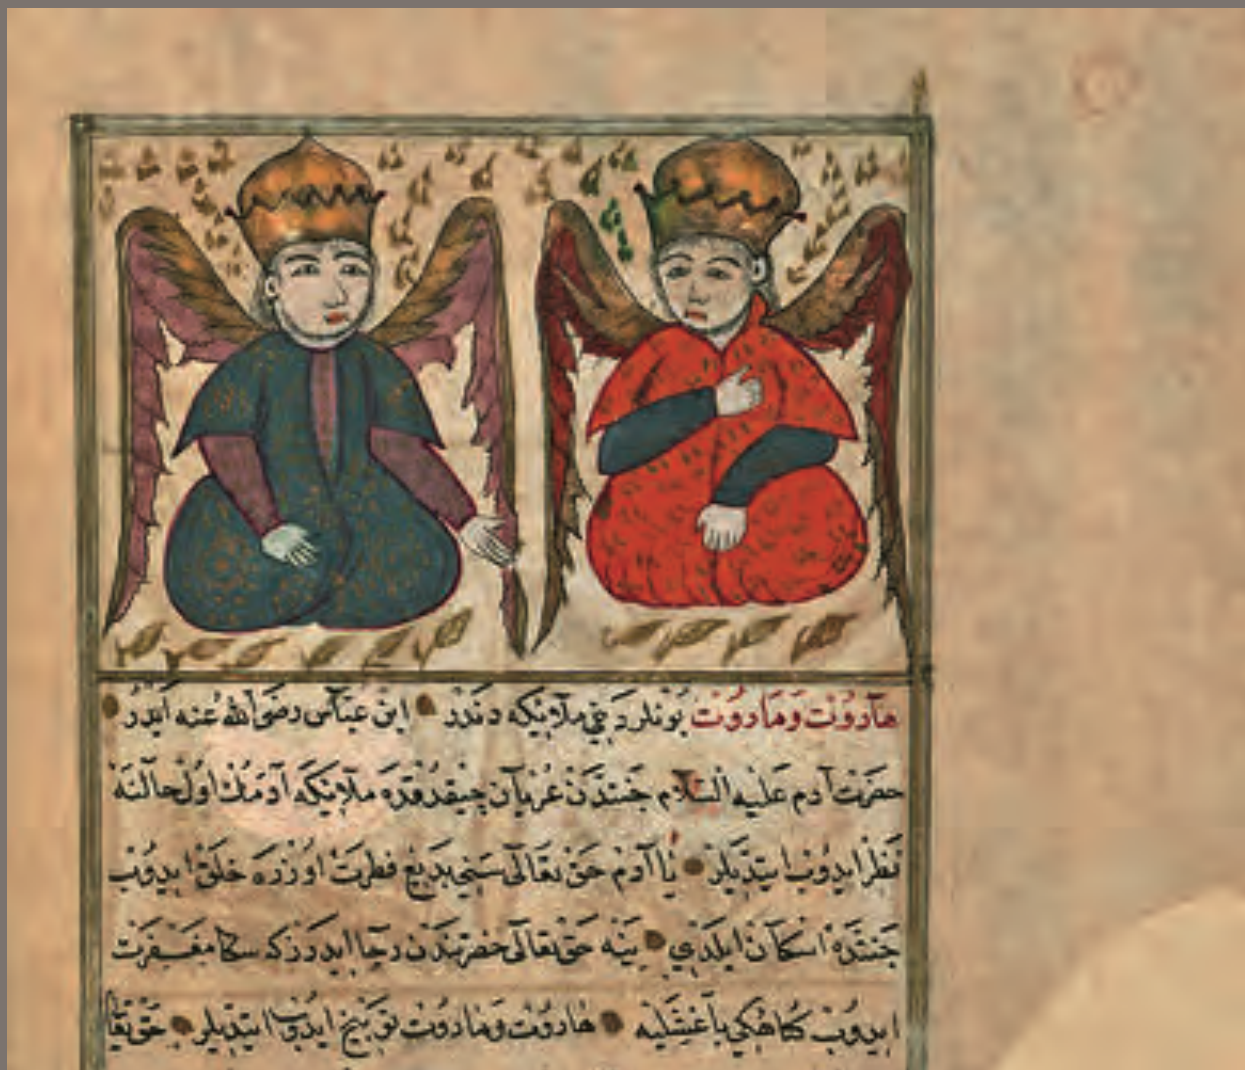 هاروت وماروت بونلر دخي ملائكه دندر ابن عباس رضى الله عنه ايدر
حضرت آدم عليه السلام جنتدن عريان چيقدقده ملائكه آدمك اول حالنه
نظر ايدوب ايتديلر يا آدم حق تعالى سني بديع فطرت اوزره خلق ايدوب
جنتده اسكان ايلدي ينه حق تعالى حضرتندن رجا ايدرز كه سكا مغفرت
ايدوب كناهكي باغشليه هاروت وماروت توبيخ ايدوب ايتديلر حق تعا